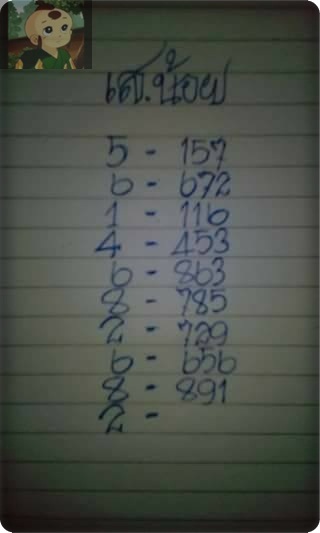 เส.น้อย
5 - 157
6 - 672
1 - 116
4 - 453
6 - 863
8 - 785
2 - 729
6 - 656
8 - 891
2 -